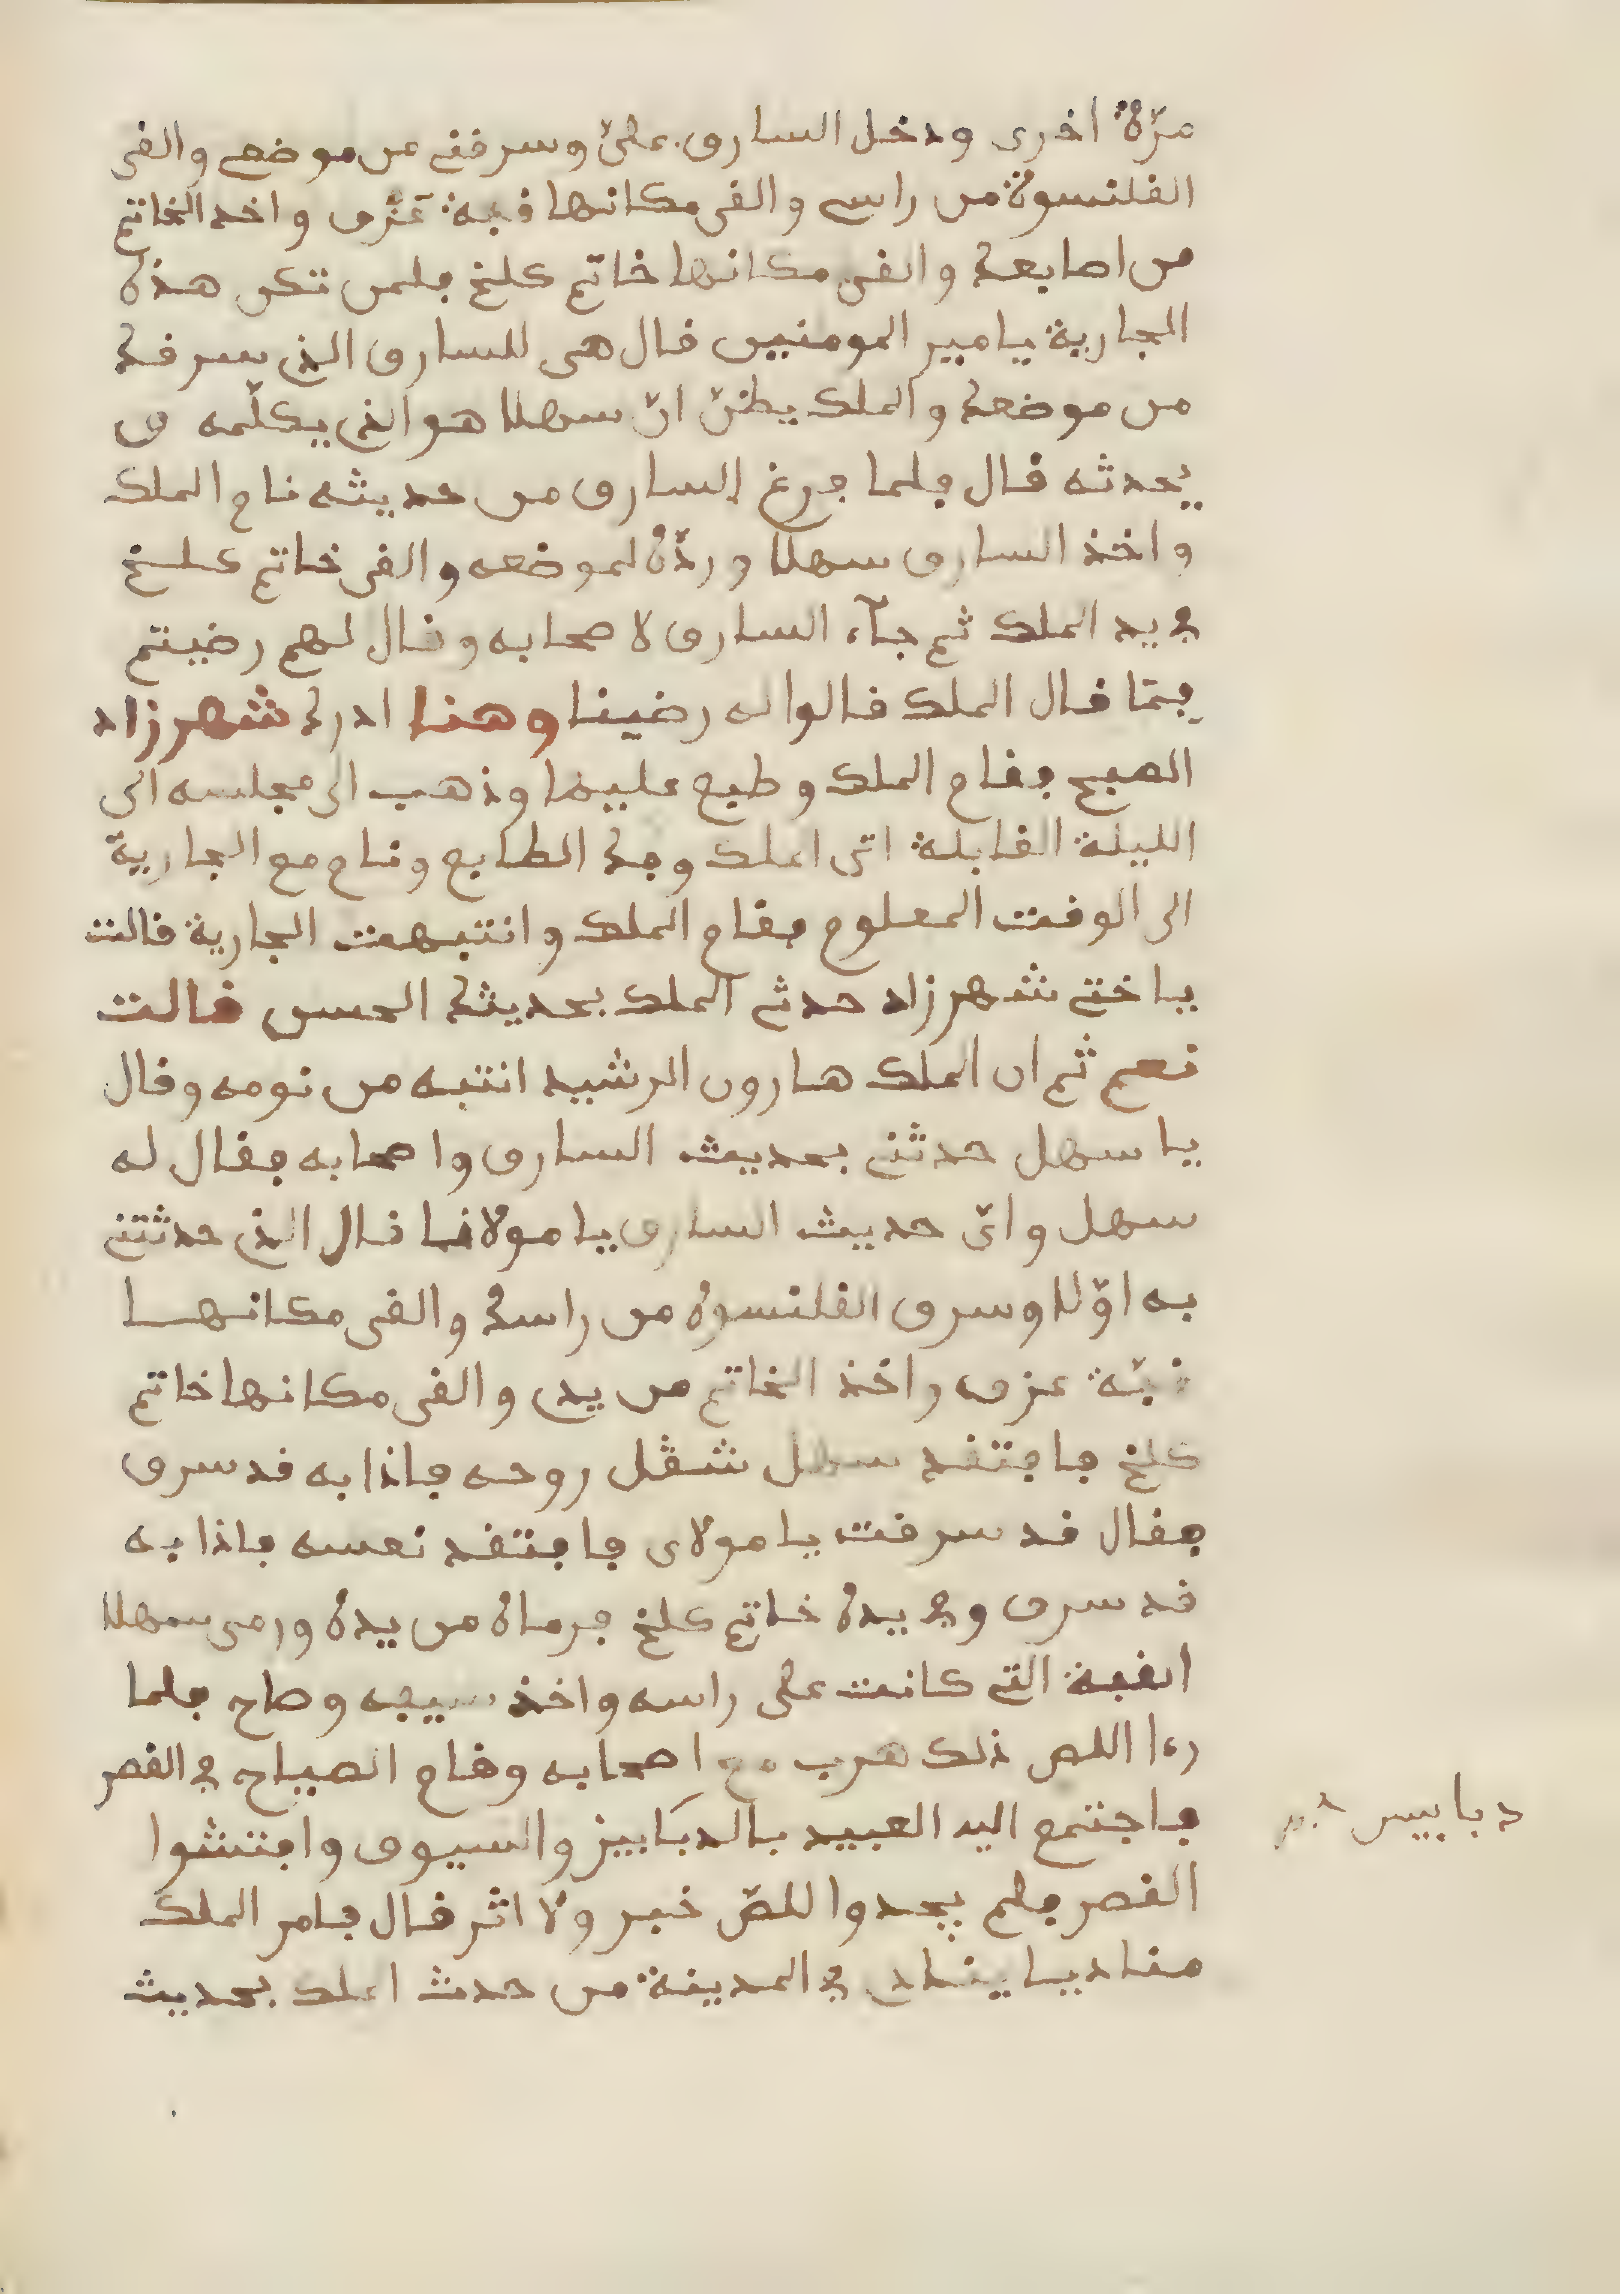 مرّة اخرى ودخل السارق عليّ وسرقني من موضعي والقى
القلنسوة من راسي والقى مكانها قبة عزف واخد الخاتم
من اصابعك والقى مكانها خاتم كلخ فلمن تكن هذه
الجارية يامير المومنين قال هي للسارق الذي سرقك
من موضعك والملك يظنّ انّ سهلا هو الذي يكلّمه و
يحدثه قال فلما فرغ السارق من حديثه نام الملك
واخذ السارق سهلا وردّه لموضعه والقى خاتم كلخ
في يد الملك ثم جآء السارق لاصحابه وقال لهم رضيتم
بمّا قال الملك قالوا له رضينا وهنا ادرك شهرزاد
الصبح فقام الملك وطبع عليها وذهب الى مجلسه الى
الليلة القابلة اتى الملك وفك الطابع ونام مع الجارية
الى الوقت المعلوم فقام الملك وانتبهت الجارية قالت
ياختي شهرزاد حدثي الملك بحديثك الحسن قالت
نعم ثم ان الملك هارون الرشيد انتبه من نومه وقال
يا سهل حدثني بحديث السارق واصحابه فقال له
سهل وايّ حديث السارق يا مولانا قال الذي حدثتني
به اوّلا وسرق القلنسوة من راسك والقى مكانها
قبّة عزف واخذ الخاتم من يدي والقى مكانها خاتم
كلخ فافتقد سهل شڧل روحه فاذا به قد سرق
فقال قد سرقت يا مولاى فافتقد نفسه فاذا به
قد سرق وفي يده خاتم كلخ فرماه من يده ورمى سهلا
القبة التي كانت على راسه واخذ سيفه وصاح فلما
رءا اللص ذلك هرب مع اصحابه وقام الصياح في القصر
فاجتمع اليه العبيد بالدبَابيز والسيوف وافتشوا
القصر فلم يجدوا للصّ خبر ولا اثر قال فامر الملك
مناديا ينادي في المدينة من حدث الملك بحديث
دبابيس